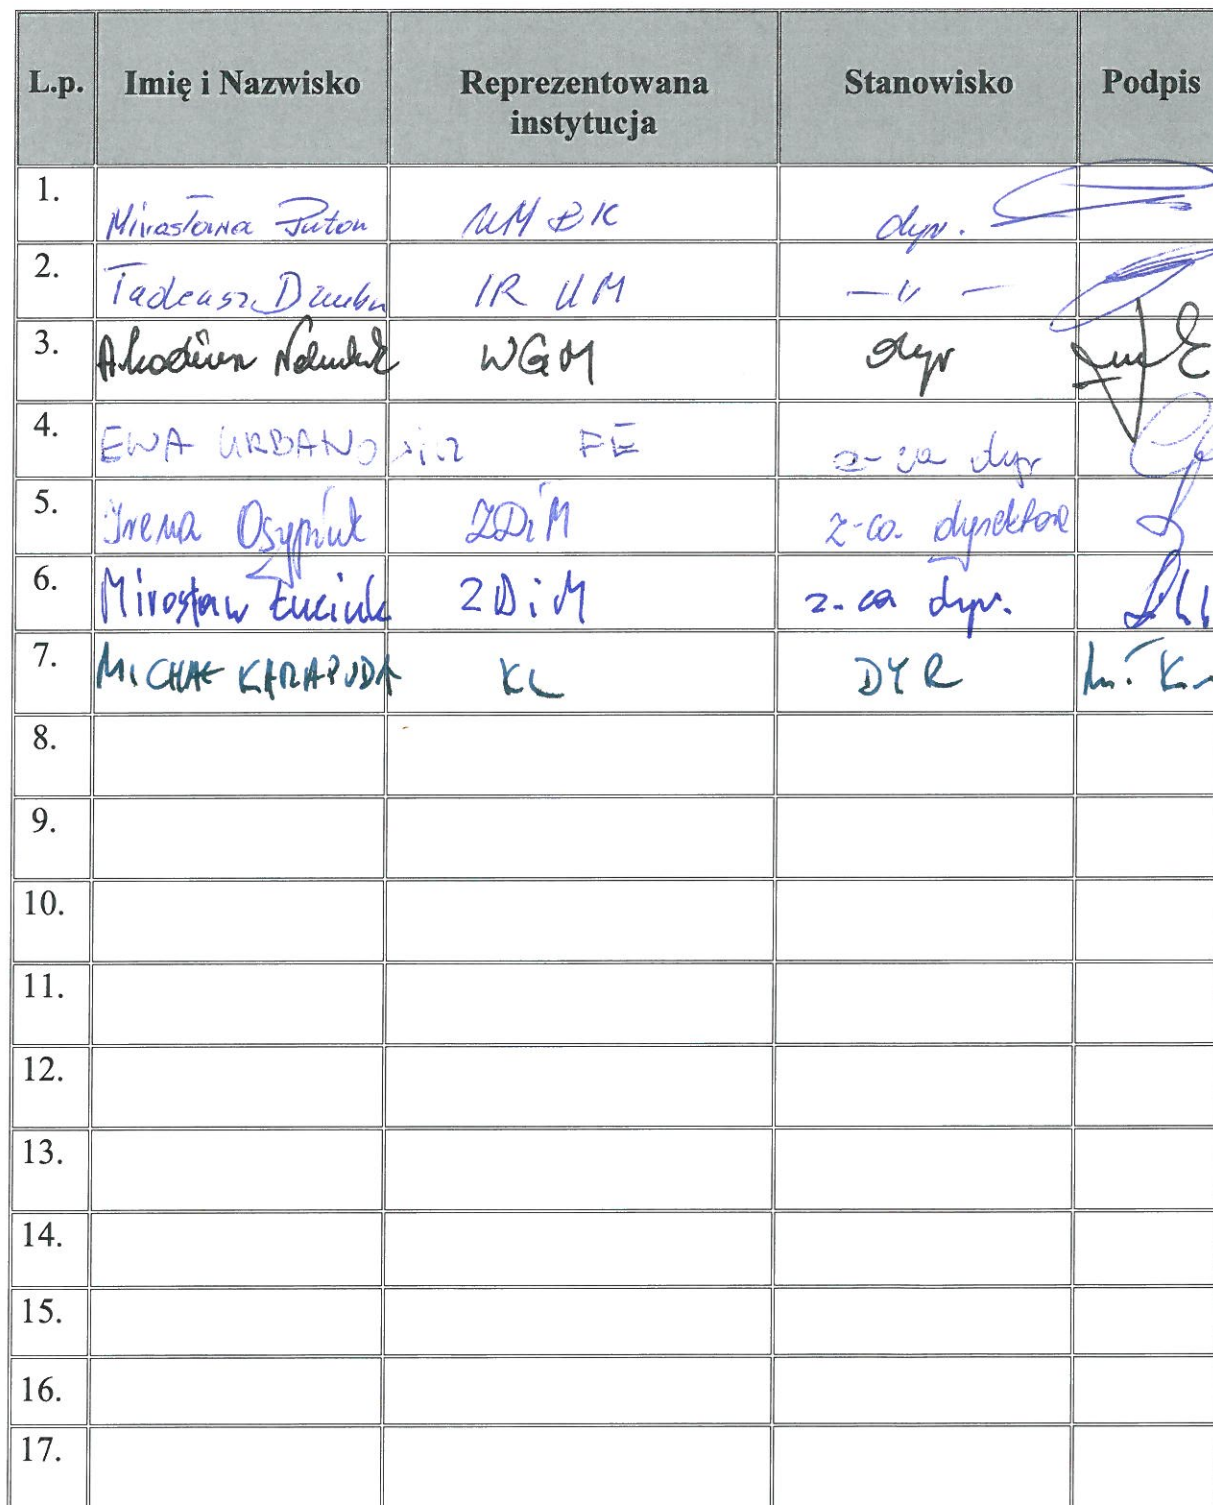 L.p. Imię i Nazwisko Reprezentowana instytucja Stanowisko Podpis
1. Mirosława Puton UM BK dyr.
2. Tadeusz Dziuba IR UM —〃—
3. WGM dyr
4. EWA URBANOWICZ FE z-ca dyr
5. Irena Osypiuk ZDiM z-ca dyrektora
6. Mirosław Łuciuk ZDiM z-ca dyr.
7. MICHAŁ KARAPUDA KL DYR
8.
9.
10.
11.
12.
13.
14.
15.
16.
17.